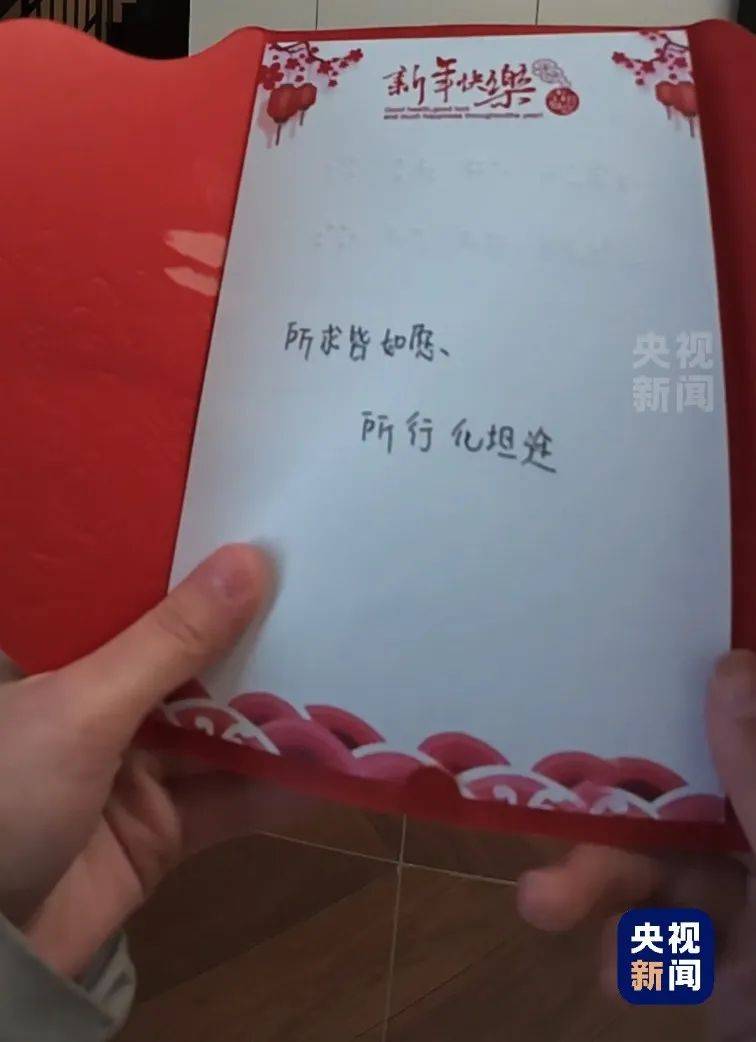 新年快樂
Good health, good luck
and much happiness throughout the year!
所求皆如愿、
所行化坦途
央视
新闻
央视
新闻